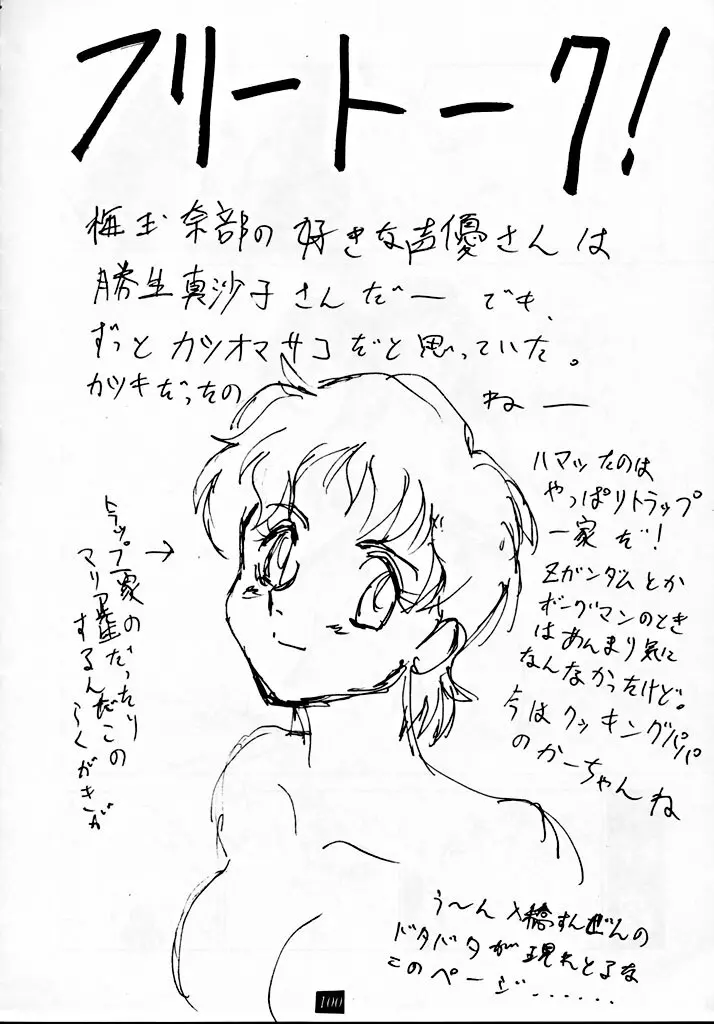 フリートーク!
梅玉奈部の好きな声優さんは
勝生真沙子さんだー でも、
ずっとカツオマサコだと思っていた。
カツキだったの ねー
ハマッたのは
やっぱりトラップ
一家だ!
Zガンダムとか
ボーグマンのとき
はあんまり気に
なんなかったけど。
今はクッキングパパ
のかーちゃんね
→
トラップ一家の
マリア先生だったり
するんだこの
らくがきが
う〜ん〆切すんぜんの
ドタバタが現れとるな
このページ‥‥‥
100